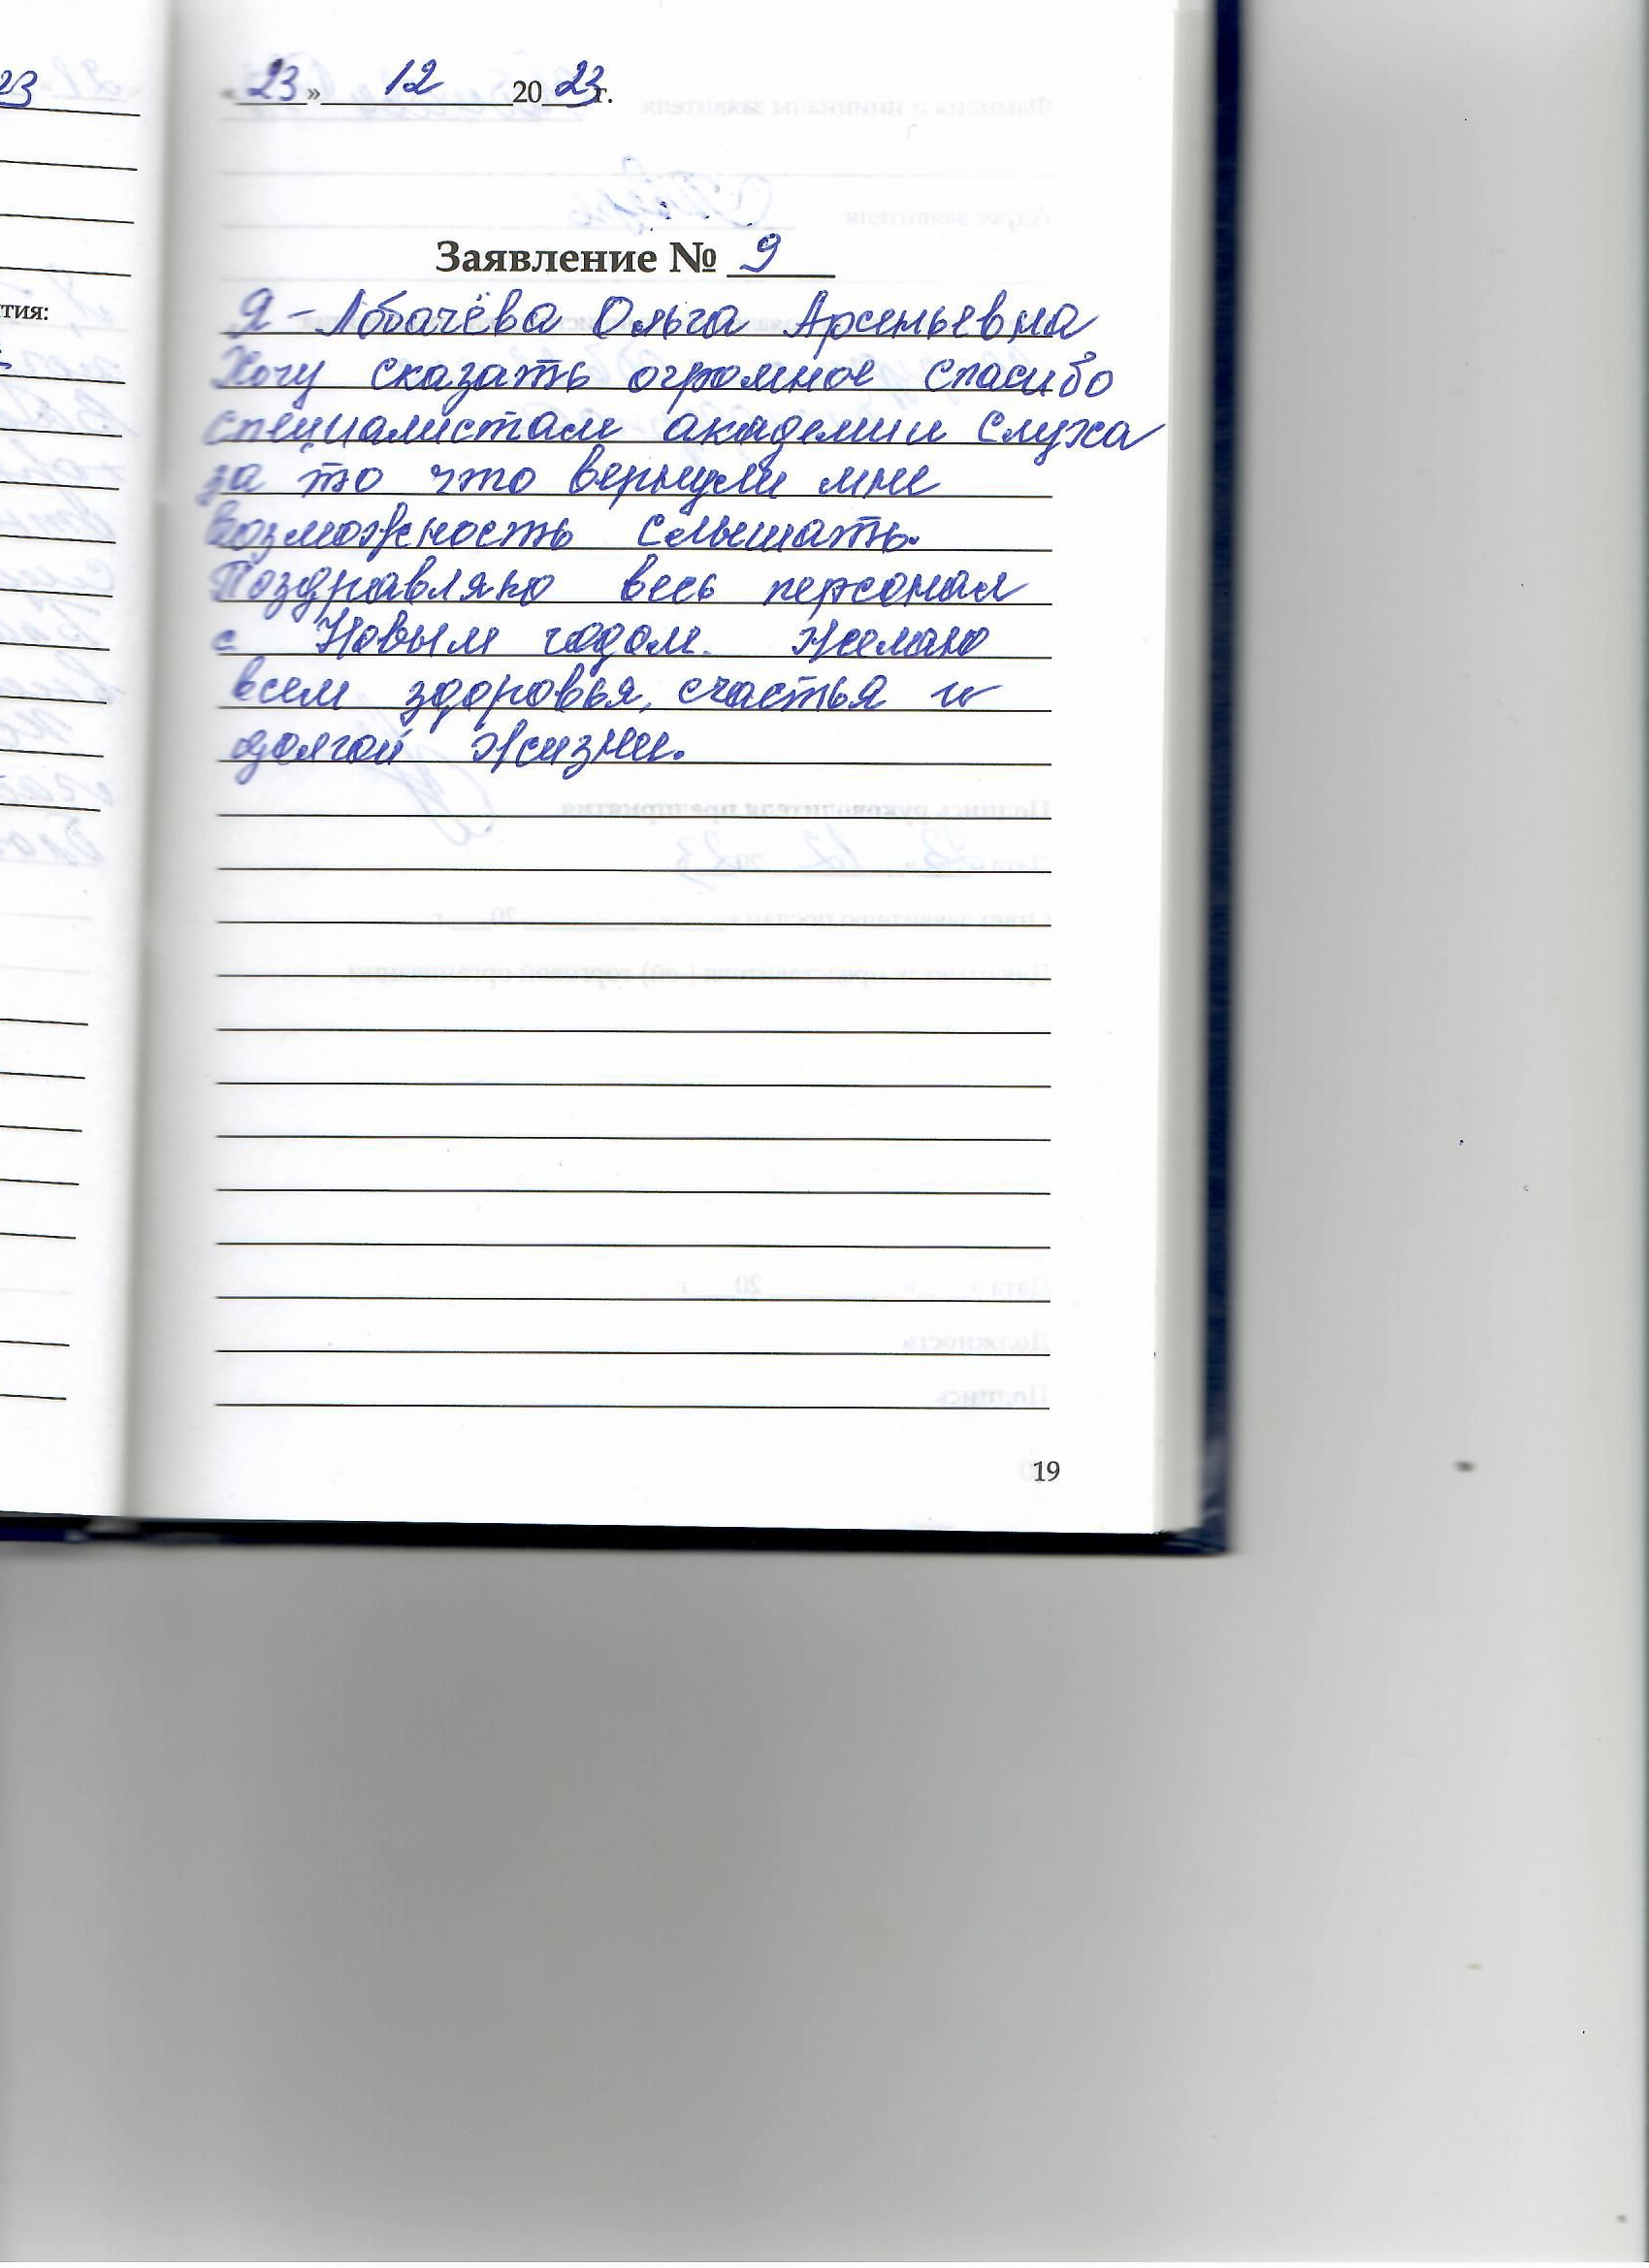 «23» 12 2023г.
Заявление № 9
Я - Лобачёва Ольга Арсеньевна
Хочу сказать огромное спасибо
специалистам академии Слуха
за то что вернули мне
возможность слышать.
Поздравляю весь персонал
с Новым годом. Желаю
всем здоровья, счастья и
долгой жизни.
19
23
тия: